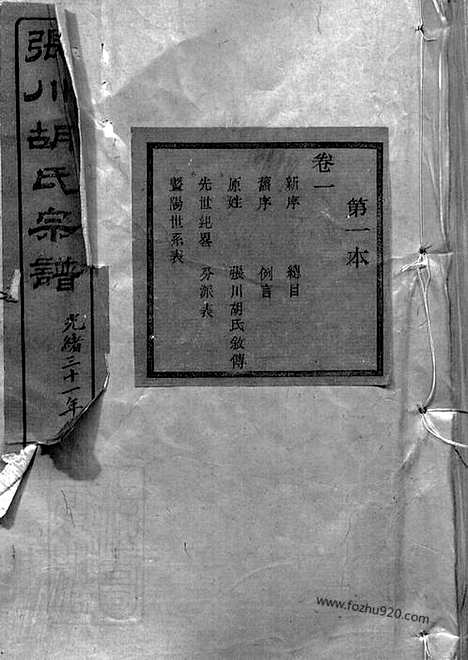 張川胡氏宗譜
光緒三十一年
第一本
卷一
新序 總目
舊序 例言
原姓 張川胡氏敘傳
先世紀畧 分派表
暨陽世系表
www.fozhu920.com